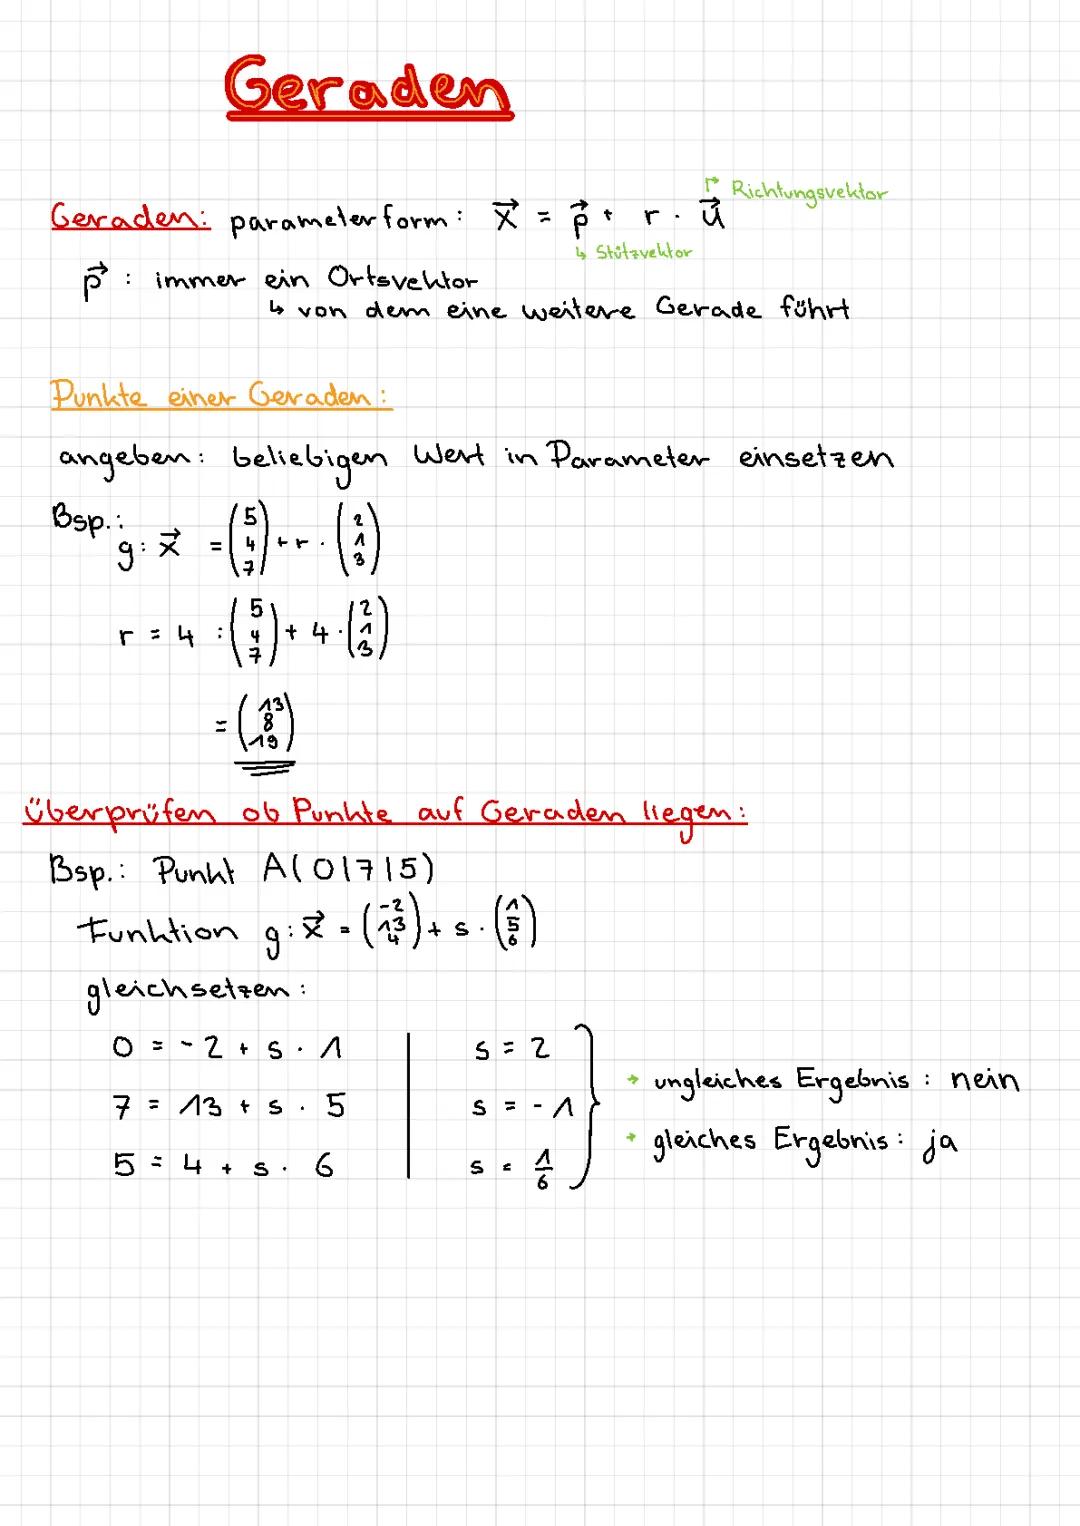 Geraden
Geraden: parameterform: x⃗ = p⃗ + r · u⃗ ↱ Richtungsvektor
↳ Stützvektor
p⃗ : immer ein Ortsvektor
↳ von dem eine weitere Gerade führt
Punkte einer Geraden:
angeben: beliebigen Wert in Parameter einsetzen
Bsp.:
g: x⃗ = (5 4 7) + r · (2 1 3)
r = 4 : (5 4 7) + 4 · (2 1 3)
= (13 8 19)
überprüfen ob Punkte auf Geraden liegen:
Bsp.: Punkt A(0|7|5)
Funktion g: x⃗ = (-2 13 4) + s · (1 5 6)
gleichsetzen:
0 = -2 + s · 1 | s = 2
→ ungleiches Ergebnis : nein
7 = 13 + s · 5 | s = -1
→ gleiches Ergebnis : ja
5 = 4 + s · 6 | s = 1/6